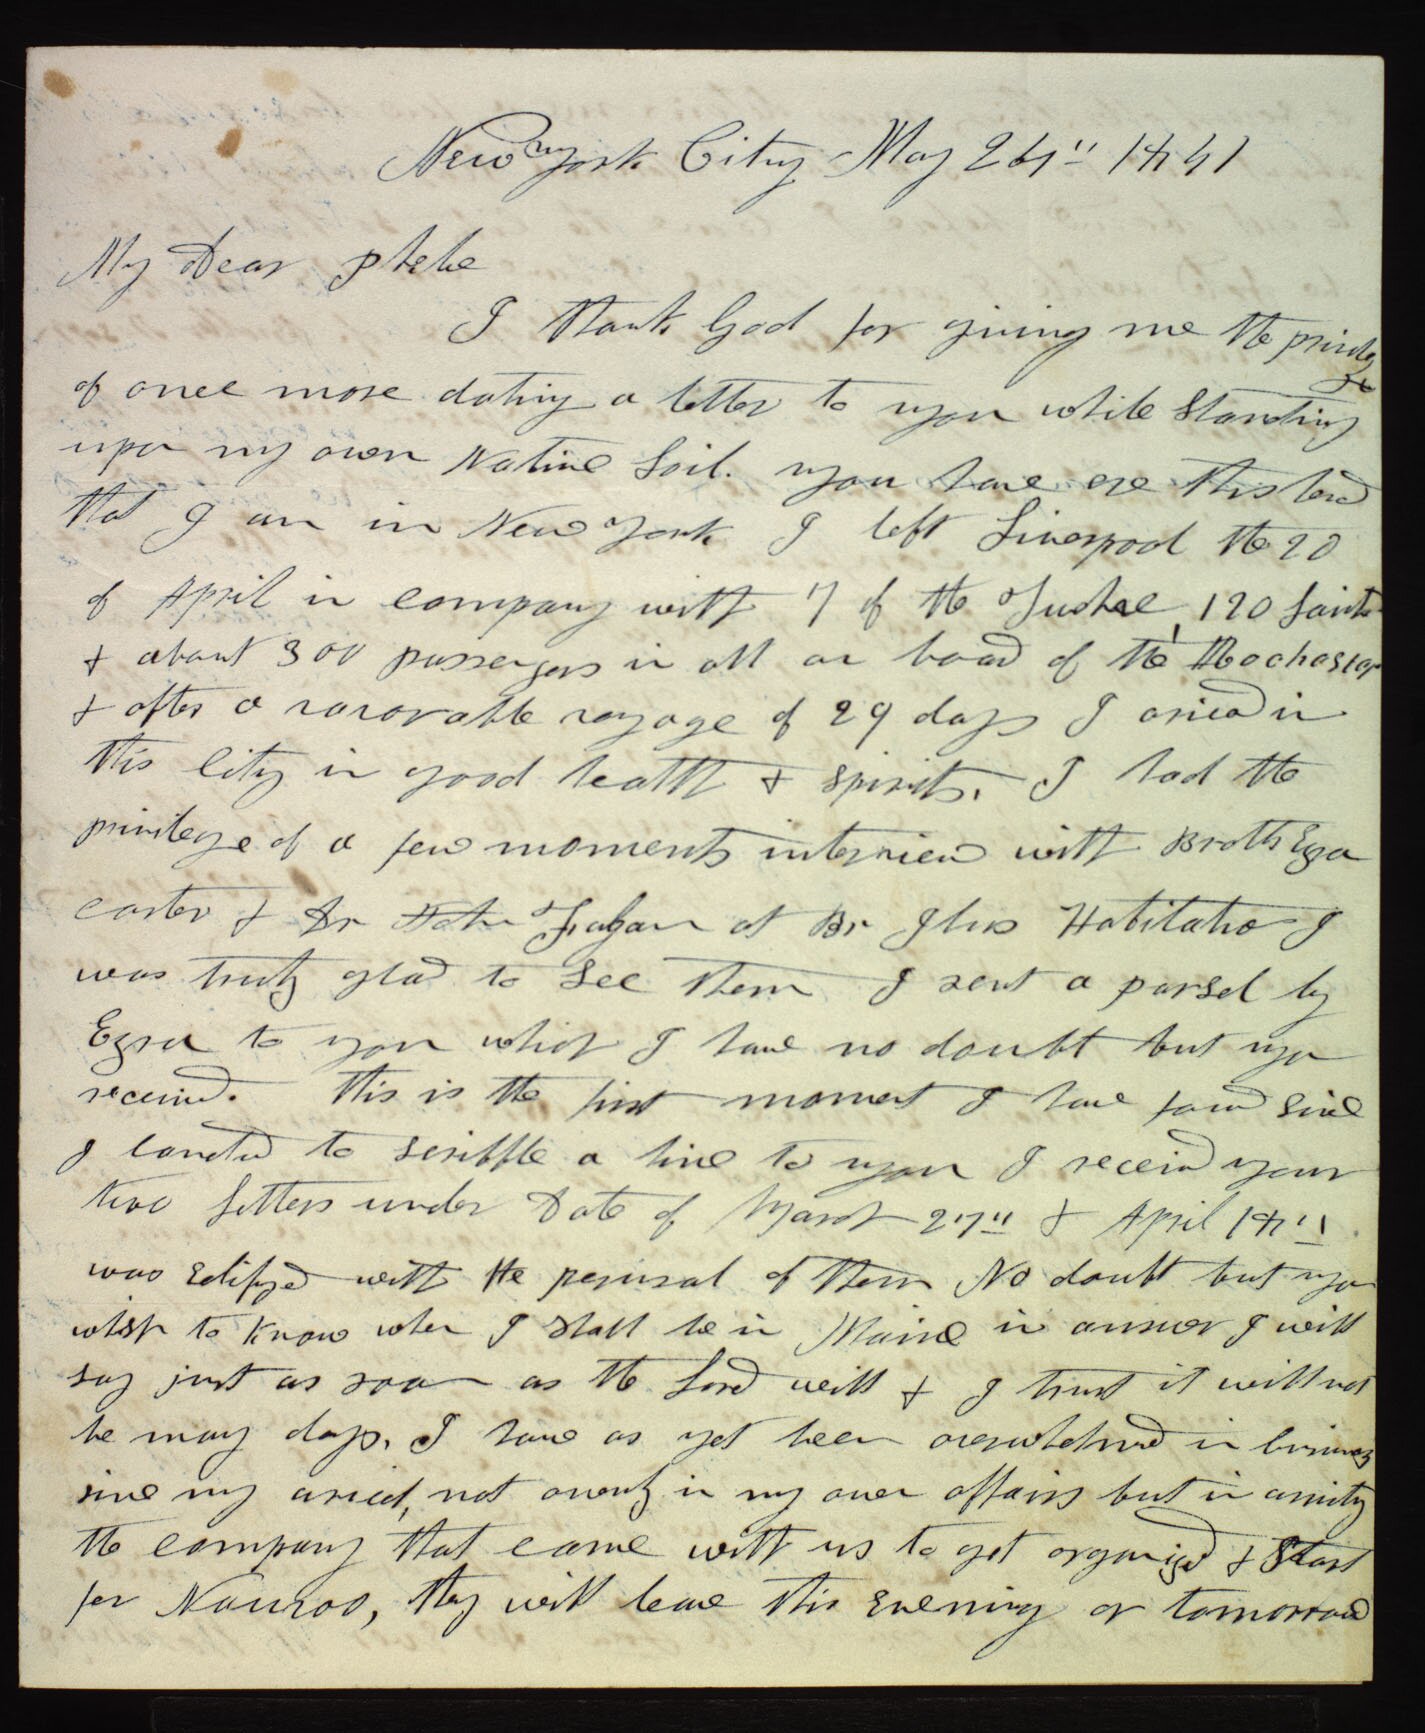 New York City May 24" 1841
My Dear Phebe
I thank God for giving me the privilege
of once more dating a letter to you while standing
upon my own Native Soil. you have ere this herd
that I am in New York I left Liverpool the 20
of April in company with 7 of the Twelve, 120 Saints
& about 300 passengers in all on board of the Rochester
& after a favorable voyage of 29 days I arived in
this City in good health & spirits. I had the
privilege of a few moments interview with Broth Ezra
carter & Dr Fabyan at Br Ilus Habitatio I
was truly glad to see them I sent a parsel by
Ezra to you which I have no doubt but you
received. This is the first moment I have found since
I landed to scribble a line to you I received your
two letters under Date of March 27" & April 18"
was edifyed with the perusal of them No doubt but you
wish to know when I shall be in Maine in answer I will
say just as soon as the Lord will & I trust it will not
be many days. I have as yet been overwhelmed in business
since my arival, not ownly in my own affairs but in assisting
the company that came with us to get organized & Start
for Nauvoo, they will leave this evening or tomorrow